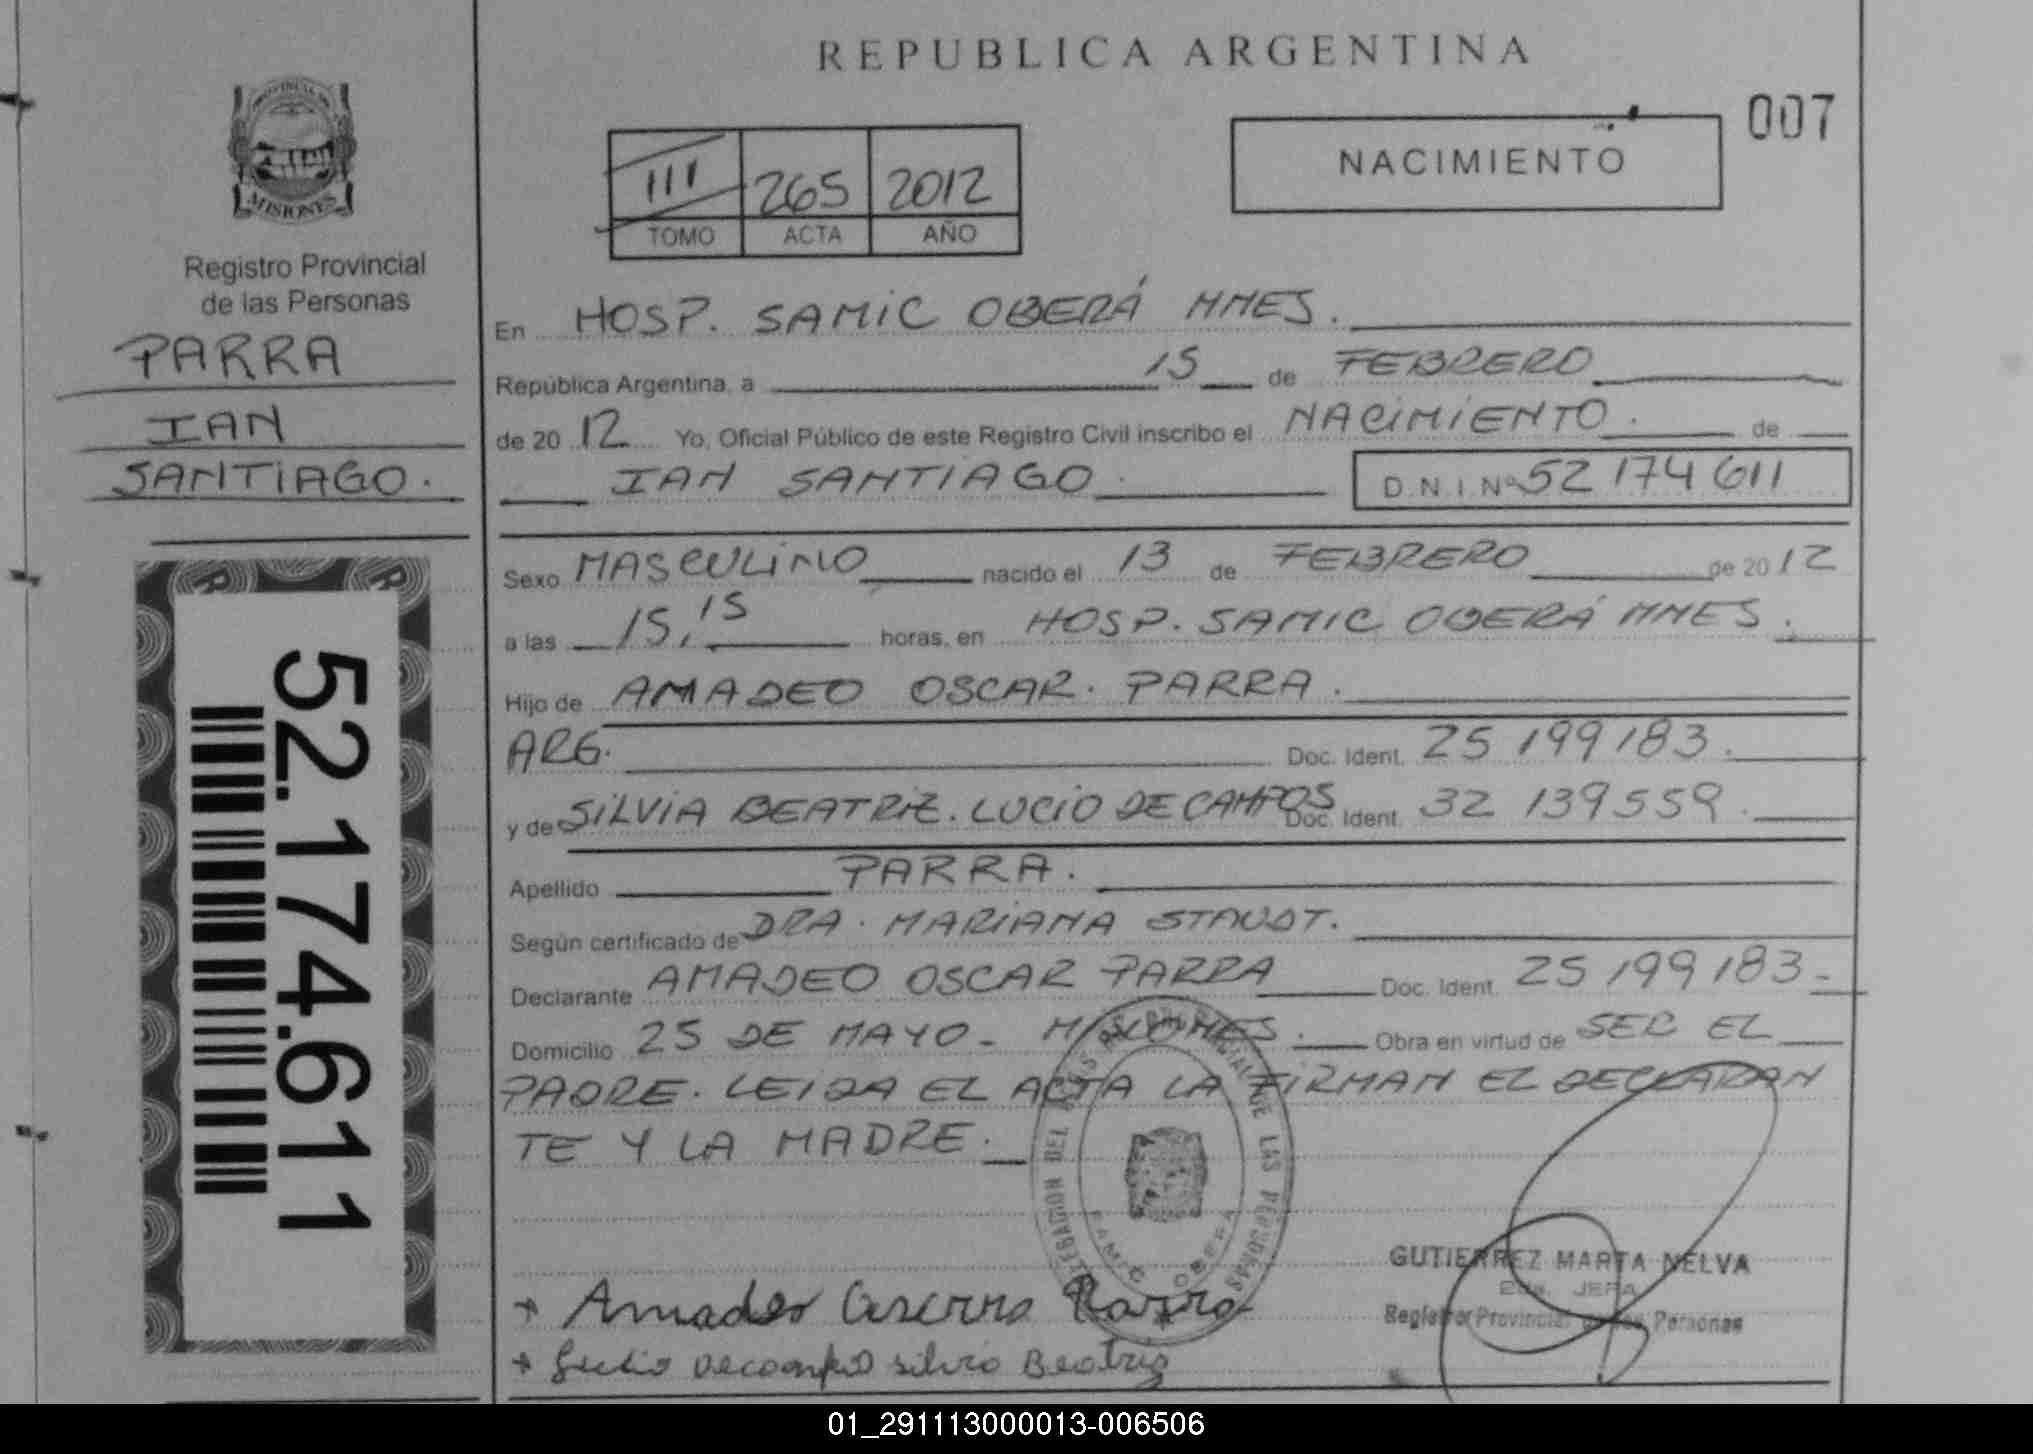 REPUBLICA ARGENTINA
007
NACIMIENTO
III 265 2012
TOMO ACTA AÑO
MISIONES
Registro Provincial
de las Personas
PARRA
IAN
SANTIAGO.
52.174.611
En HOSP. SAMIC OBERÁ MNES.
República Argentina, a 15 de FEBRERO
de 2012 Yo, Oficial Público de este Registro Civil inscribo el NACIMIENTO. de
IAN SANTIAGO. D.N.I. Nº 52 174 611
Sexo MASCULINO nacido el 13 de FEBRERO de 2012
a las 15,15 horas, en HOSP. SAMIC OBERÁ MNES.
Hijo de AMADEO OSCAR. PARRA.
ARG. Doc. Ident. 25 199 183.
y de SILVIA BEATRIZ. LUCIO DE CAMPOS Doc. Ident. 32 139 559.
Apellido PARRA.
Según certificado de DRA. MARIANA STAUDT.
Declarante AMADEO OSCAR PARRA Doc. Ident. 25 199 183-
Domicilio 25 DE MAYO- MNES. Obra en virtud de SER EL
PADRE. LEIDA EL ACTA LA FIRMAN EL DECLARAN
TE Y LA MADRE.
DE LAS PERSONAS
SAMIC OBERA
GUTIERREZ MARTA NELVA
JEFA
Registro Provincial de las Personas
Amadeo Parra
silvia Beatriz
01_291113000013-006506